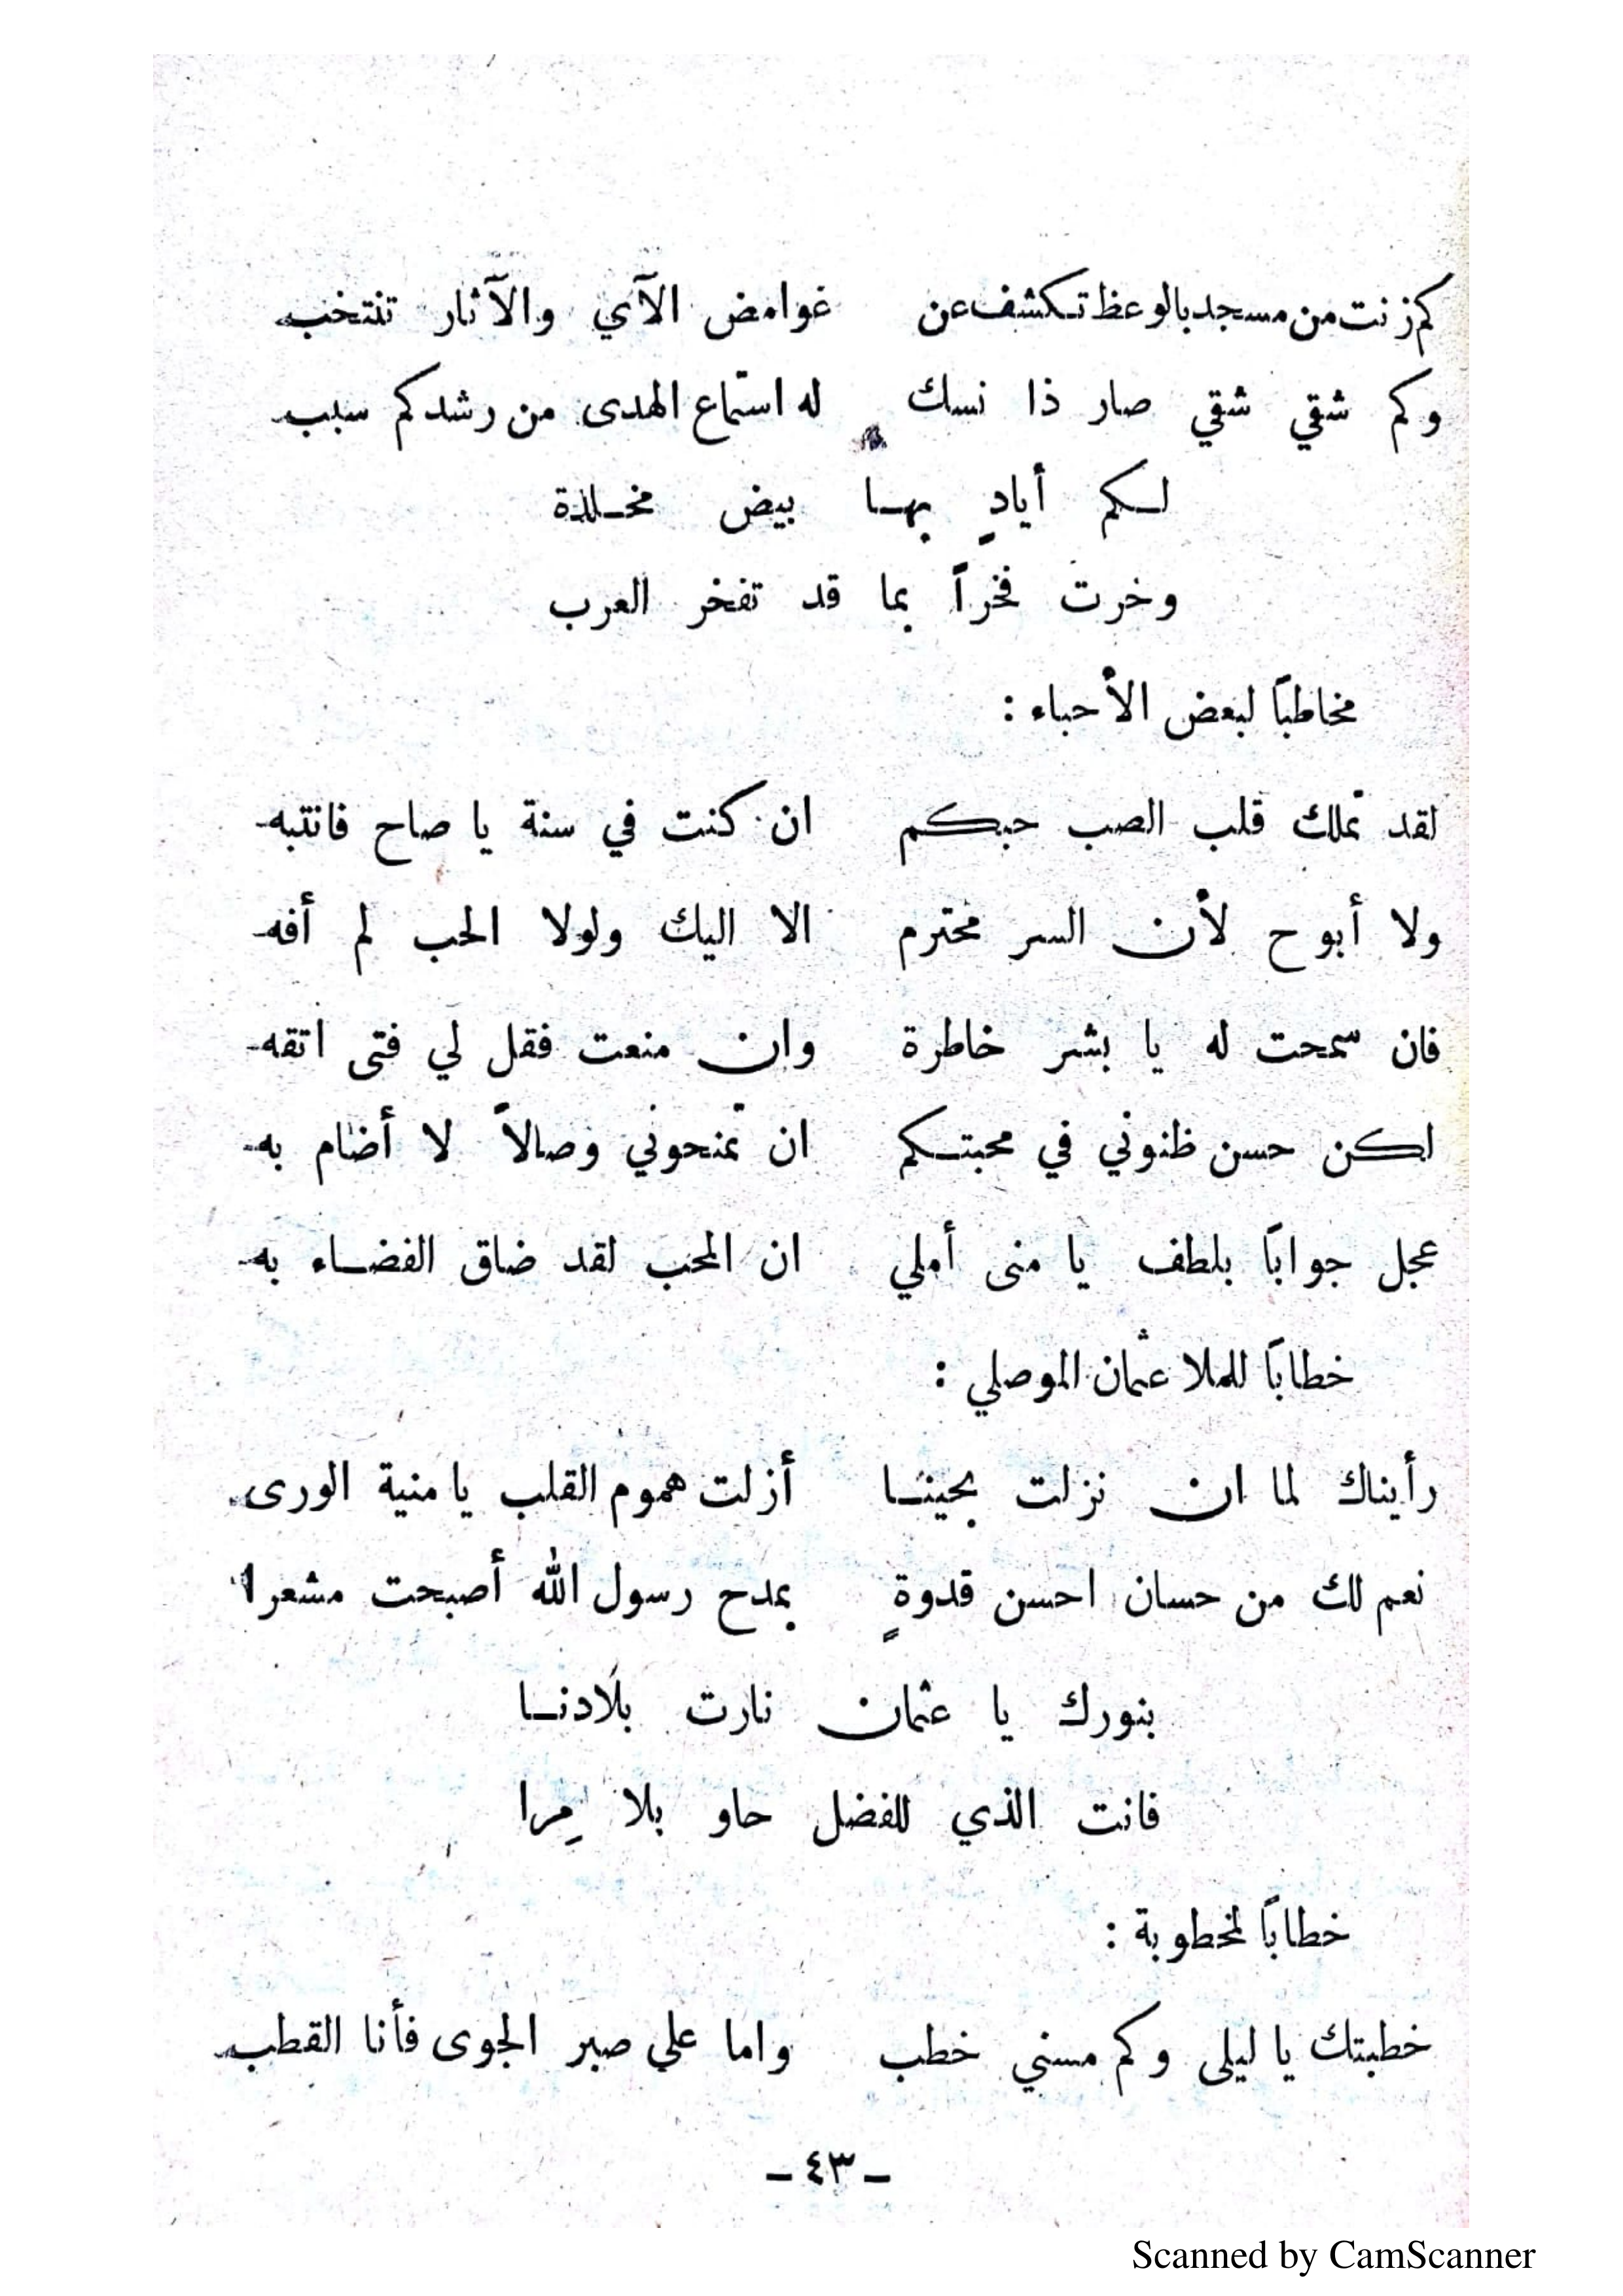 كم زنت من مسجد بالوعظ تكشف عن غوامض الآي والآثار تنتخب
وكم شقي شقي صار ذا نسك له استماع الهدى من رشدكم سبب
لكم أيادٍ بها بيض مخلدة
وخرت فخراً بما قد تفخر العرب
مخاطباً لبعض الأحباء :
لقد تملك قلب الصب حبكم ان كنت في سنة يا صاح فانتبه
ولا أبوح لأن السر محترم الا اليك ولولا الحب لم أفه
فان سمحت له يا بشر خاطرة وان منعت فقل لي فتى اتقه
لكن حسن ظنوني في محبتكم ان تمنحوني وصالاً لا أضام به
عجل جواباً بلطف يا منى أملي ان المحب لقد ضاق الفضاء به
خطاباً للملا عثمان الموصلي :
رأيناك لما ان نزلت بحينا أزلت هموم القلب يا منية الورى
نعم لك من حسان احسن قدوةٍ بمدح رسول الله أصبحت مشعرا
بنورك يا عثمان نارت بلادنا
فانت الذي للفضل حاو بلا مِرا
خطاباً لمخطوبة :
خطبتك يا ليلى وكم مسني خطب واما علي صبر الجوى فأنا القطب
- ٤٣ -
Scanned by CamScanner